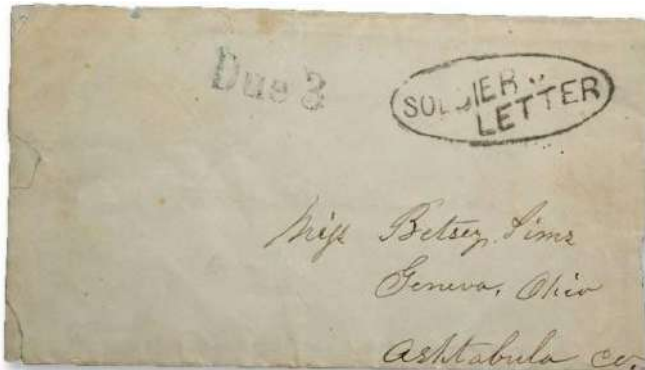 Due 3
SOLDIER'S
LETTER
Miss Betsey Sims
Geneva, Ohio
Ashtabula co.